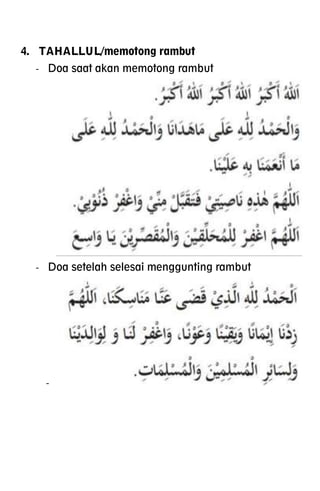 4. TAHALLUL/memotong rambut
- Doa saat akan memotong rambut
اَللّٰهُ أَكْبَرُ اَللّٰهُ أَكْبَرُ اَللّٰهُ أَكْبَرُ.
وَالْحَمْدُ لِلّٰهِ عَلَى مَاهَدَانَا وَالْحَمْدُ لِلّٰهِ عَلَى
مَا أَنْعَمَنَا بِهِ عَلَيْنَا.
اَللّٰهُمَّ هٰذِهِ نَاصِيَتِيْ فَتَقَبَّلْ مِنِّيْ وَاغْفِرْ ذُنُوْبِيْ.
اَللّٰهُمَّ اغْفِرْ لِلْمُحَلِّقِيْنَ وَالْمُقَصِّرِيْنَ يَا وَاسِعَ
- Doa setelah selesai menggunting rambut
اَلْحَمْدُ لِلّٰهِ الَّذِيْ قَضَى عَنَّا مَنَاسِكَنَا، اَللّٰهُمَّ
زِدْنَا إِيْمَانًا وَيَقِيْنًا وَعَوْنًا، وَاغْفِرْ لَنَا وَ لِوَالِدَيْنَا
وَلِسَائِرِ الْمُسْلِمِيْنَ وَالْمُسْلِمَاتِ.
-